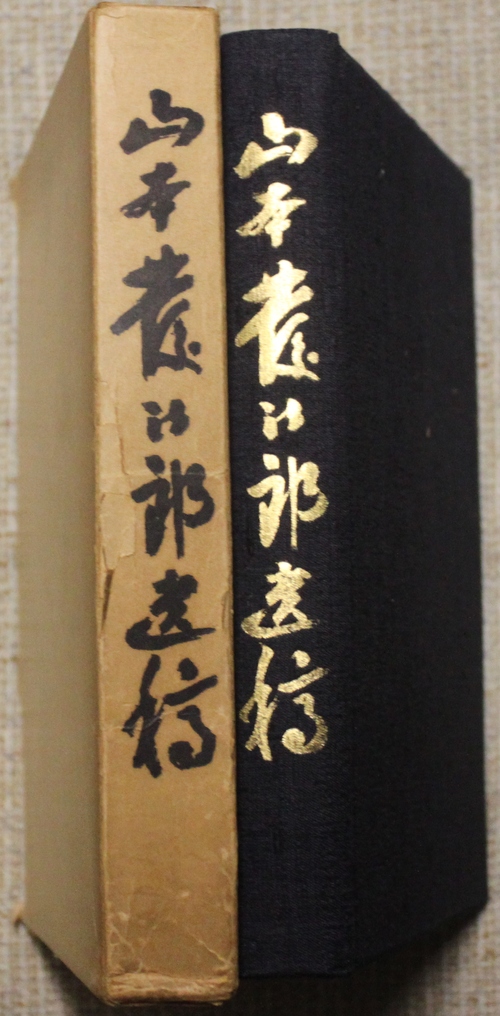 山本發次郎遺稿
山本發次郎遺稿